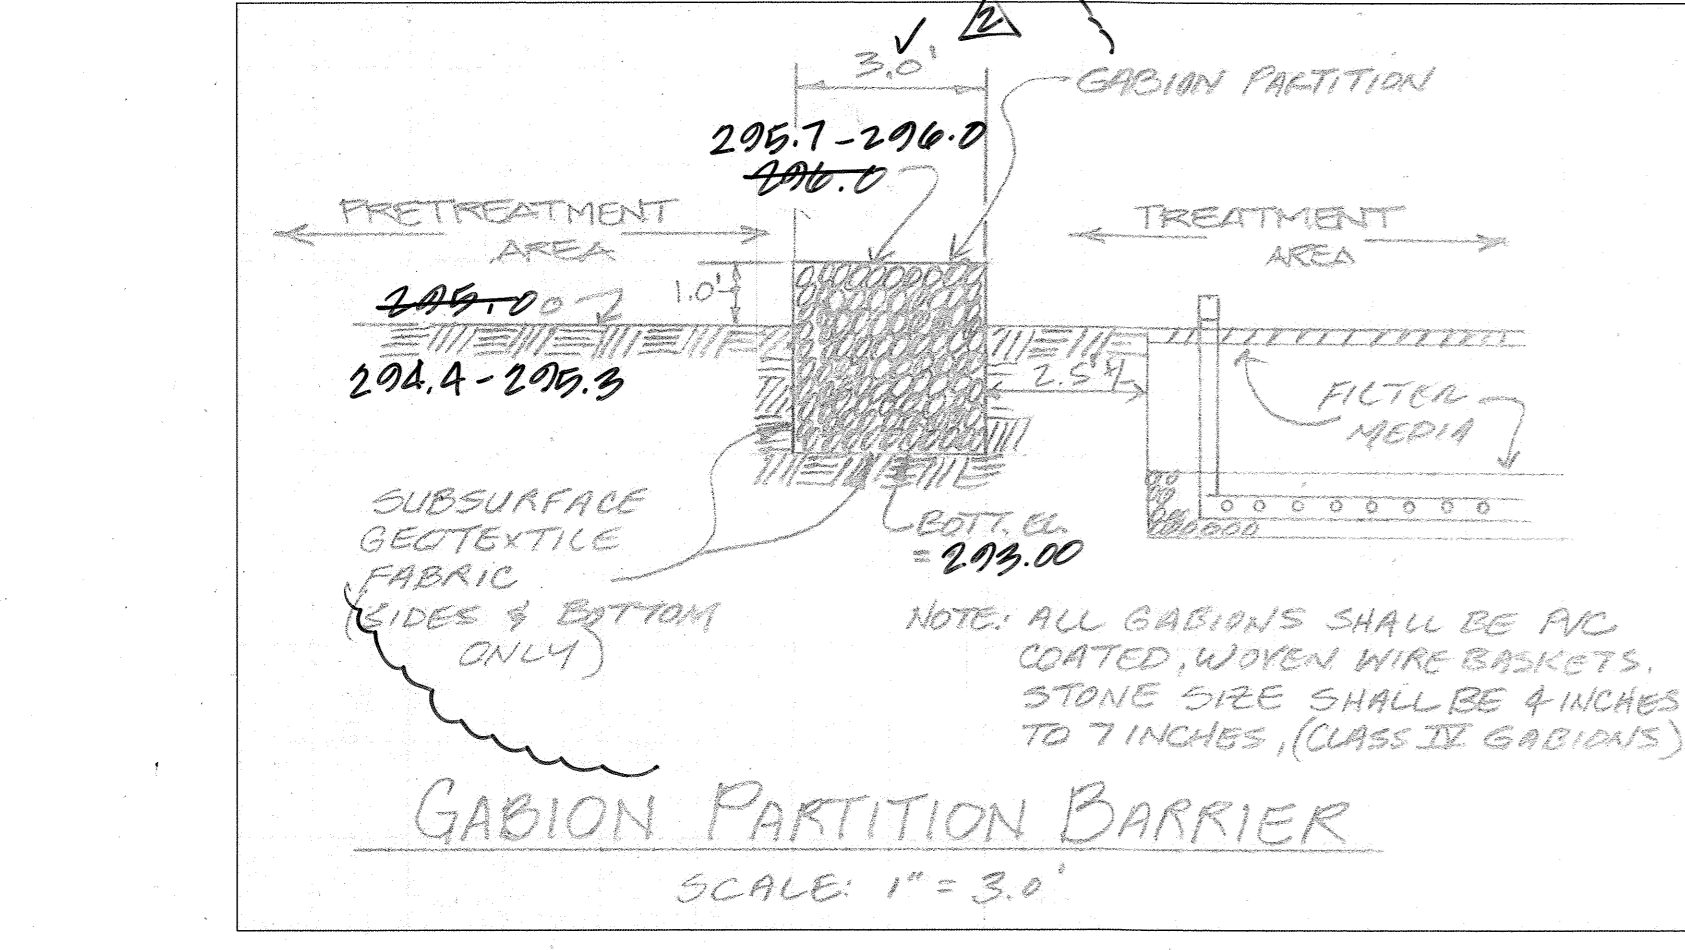 2
✓
3.0'
GABION PARTITION
295.7-296.0
296.0
PRETREATMENT
AREA
TREATMENT
AREA
295.0
1.0'
294.4-295.3
2.5'
FILTER
MEDIA
SUBSURFACE
GEOTEXTILE
FABRIC
(SIDES & BOTTOM
ONLY)
BOTT. EL.
= 293.00
NOTE: ALL GABIONS SHALL BE PVC
COATED, WOVEN WIRE BASKETS.
STONE SIZE SHALL BE 4 INCHES
TO 7 INCHES, (CLASS IV GABIONS)
GABION PARTITION BARRIER
SCALE: 1" = 3.0'